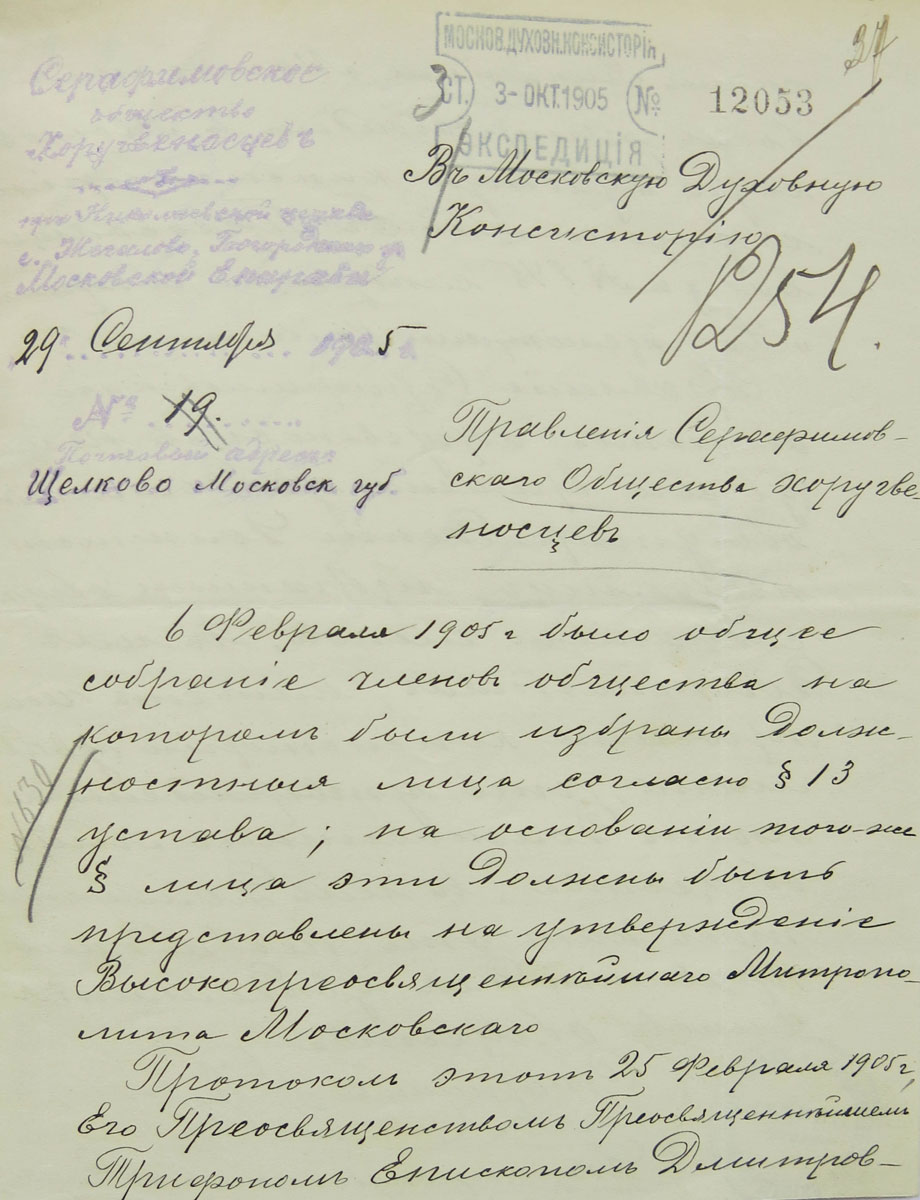 37
МОСКОВ. ДУХОВН. КОНСИСТОРІЯ
СТ. 3- ОКТ. 1905 № 12053
ЭКСПЕДИЦІЯ
Серафимовское
общество
Хоругвеносцевъ
при Николаевской церкви
с. Жегалово, Богородскаго у.
Московской Епархіи
29 Сентября 1905 г.
№ 19.
Почтовый адресъ
Щелково Московск губ.
Въ Московскую Духовную
Консисторію
1254.
Правленія Серафимов-
скаго Общества хоругве-
носцевъ
6 Февраля 1905 г было общее
собраніе членовъ общества на
которомъ были избраны долж-
ностныя лица согласно § 13
устава; на основаніи того-же
§ лица эти должны быть
представлены на утвержденіе
Высокопреосвященнѣйшаго Митропо-
лита Московскаго
Протоколъ этотъ 25 Февраля 1905 г,
Его Преосвященствомъ Преосвященнѣйшимъ
Трифономъ Епископомъ Дмитров-
№ 630